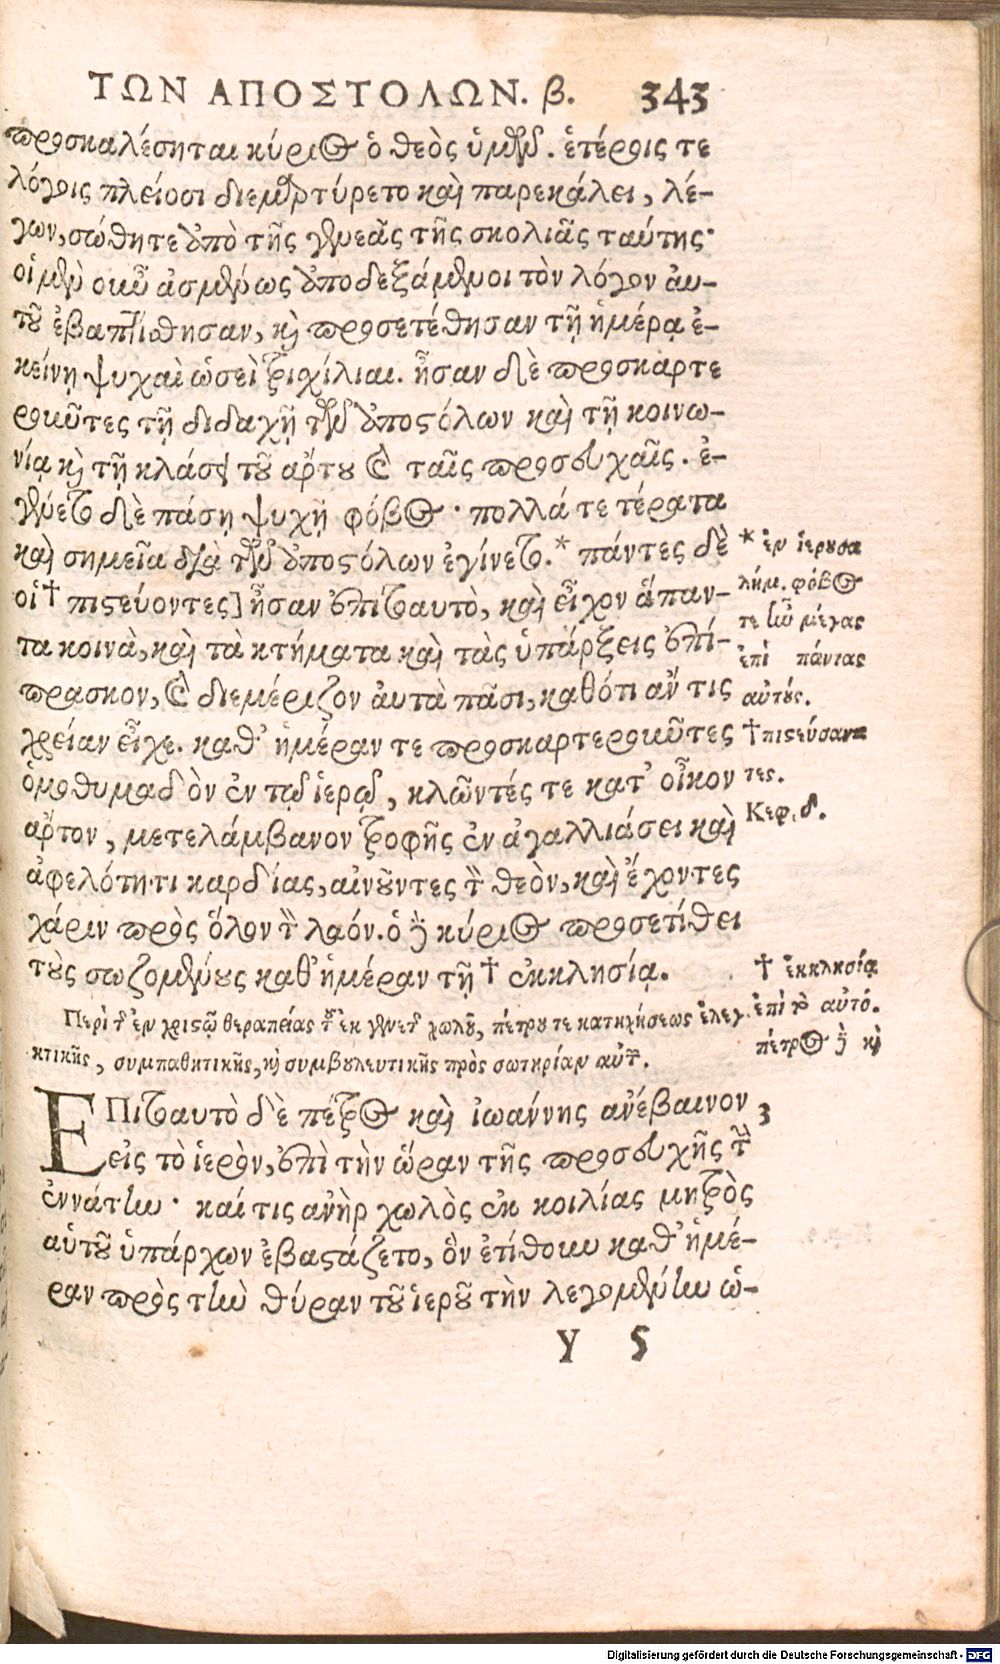 ΤΩΝ ΑΠΟΣΤΟΛΩΝ. β. 343
προσκαλέσηται κύριος ὁ θεὸς ὑμῶν. ἑτέροις τε
λόγοις πλείοσι διεμαρτύρετο καὶ παρεκάλει, λέ-
γων, σώθητε ἀπὸ τῆς γενεᾶς τῆς σκολιᾶς ταύτης·
οἱ μὲν οὖν ἀσμένως ἀποδεξάμενοι τὸν λόγον ἀυ-
τοῦ ἐβαπτίσθησαν, καὶ προσετέθησαν τῇ ἡμέρᾳ ἐ-
κείνῃ ψυχαὶ ὡσεὶ τρισχίλιαι. ἦσαν δὲ προσκαρτε
ροῦντες τῇ διδαχῇ τῶν ἀποστόλων καὶ τῇ κοινω-
νίᾳ καὶ τῇ κλάσει τοῦ ἄρτου καὶ ταῖς προσευχαῖς. ἐ-
γένετο δὲ πάσῃ ψυχῇ φόβος· πολλά τε τέρατα
καὶ σημεῖα διὰ τῶν ἀποστόλων ἐγίνετο.* πάντες δὲ
οἱ† πιστεύοντες] ἦσαν ἐπὶτοαυτὸ, καὶ εἶχον ἅπαν-
τα κοινὰ, καὶ τὰ κτήματα καὶ τὰς ὑπάρξεις ἐπί-
πρασκον, καὶ διεμέριζον ἀυτὰ πᾶσι, καθότι ἄν τις
χρείαν εἶχε. καθ' ἡμέραν τε προσκαρτεροῦντες
ὁμοθυμαδὸν ἐν τῷ ἱερῷ, κλῶντές τε κατ' οἶκον
ἄρτον, μετελάμβανον τροφῆς ἐν ἀγαλλιάσει καὶ
ἀφελότητι καρδίας, αἰνοῦντες τὸν θεὸν, καὶ ἔχοντες
χάριν πρὸς ὅλον τὸν λαόν. ὁ δὲ κύριος προσετίθει
τοὺς σωζομένους καθ' ἡμέραν τῇ† ἐκκλησίᾳ.
* ἐν ἱερουσα
λήμ. φόβος
τε ἦν μέγας
ἐπὶ πάντας
αὐτούς.
†πιστεύσαν
τες.
Κεφ. δ.
† ἐκκλησίᾳ
ἐπὶ τὸ αὐτό.
πέτρος δὲ καὶ
Περὶ τῆς ἐν χριστῷ θεραπείας τοῦ ἐκ γενετῆς χωλοῦ, πέτρου τε κατηχήσεως ἐλεγ
κτικῆς, συμπαθητικῆς, καὶ συμβουλευτικῆς πρὸς σωτηρίαν αὐτῶν.
ΕΠιτοαυτὸ δὲ πέτρος καὶ ἰωάννης ἀνέβαινον 3
εἰς τὸ ἱερὸν, ἐπὶ τὴν ὥραν τῆς προσευχῆς τὴν
ἐννάτην· καί τις ἀνὴρ χωλὸς ἐκ κοιλίας μητρὸς
αὑτοῦ ὑπάρχων ἐβαστάζετο, ὃν ἐτίθουν καθ' ἡμέ-
ραν πρὸς τὴν θύραν τοῦ ἱεροῦ τὴν λεγομένην ὡ-
Y 5
Digitalisierung gefördert durch die Deutsche Forschungsgemeinschaft - DFG